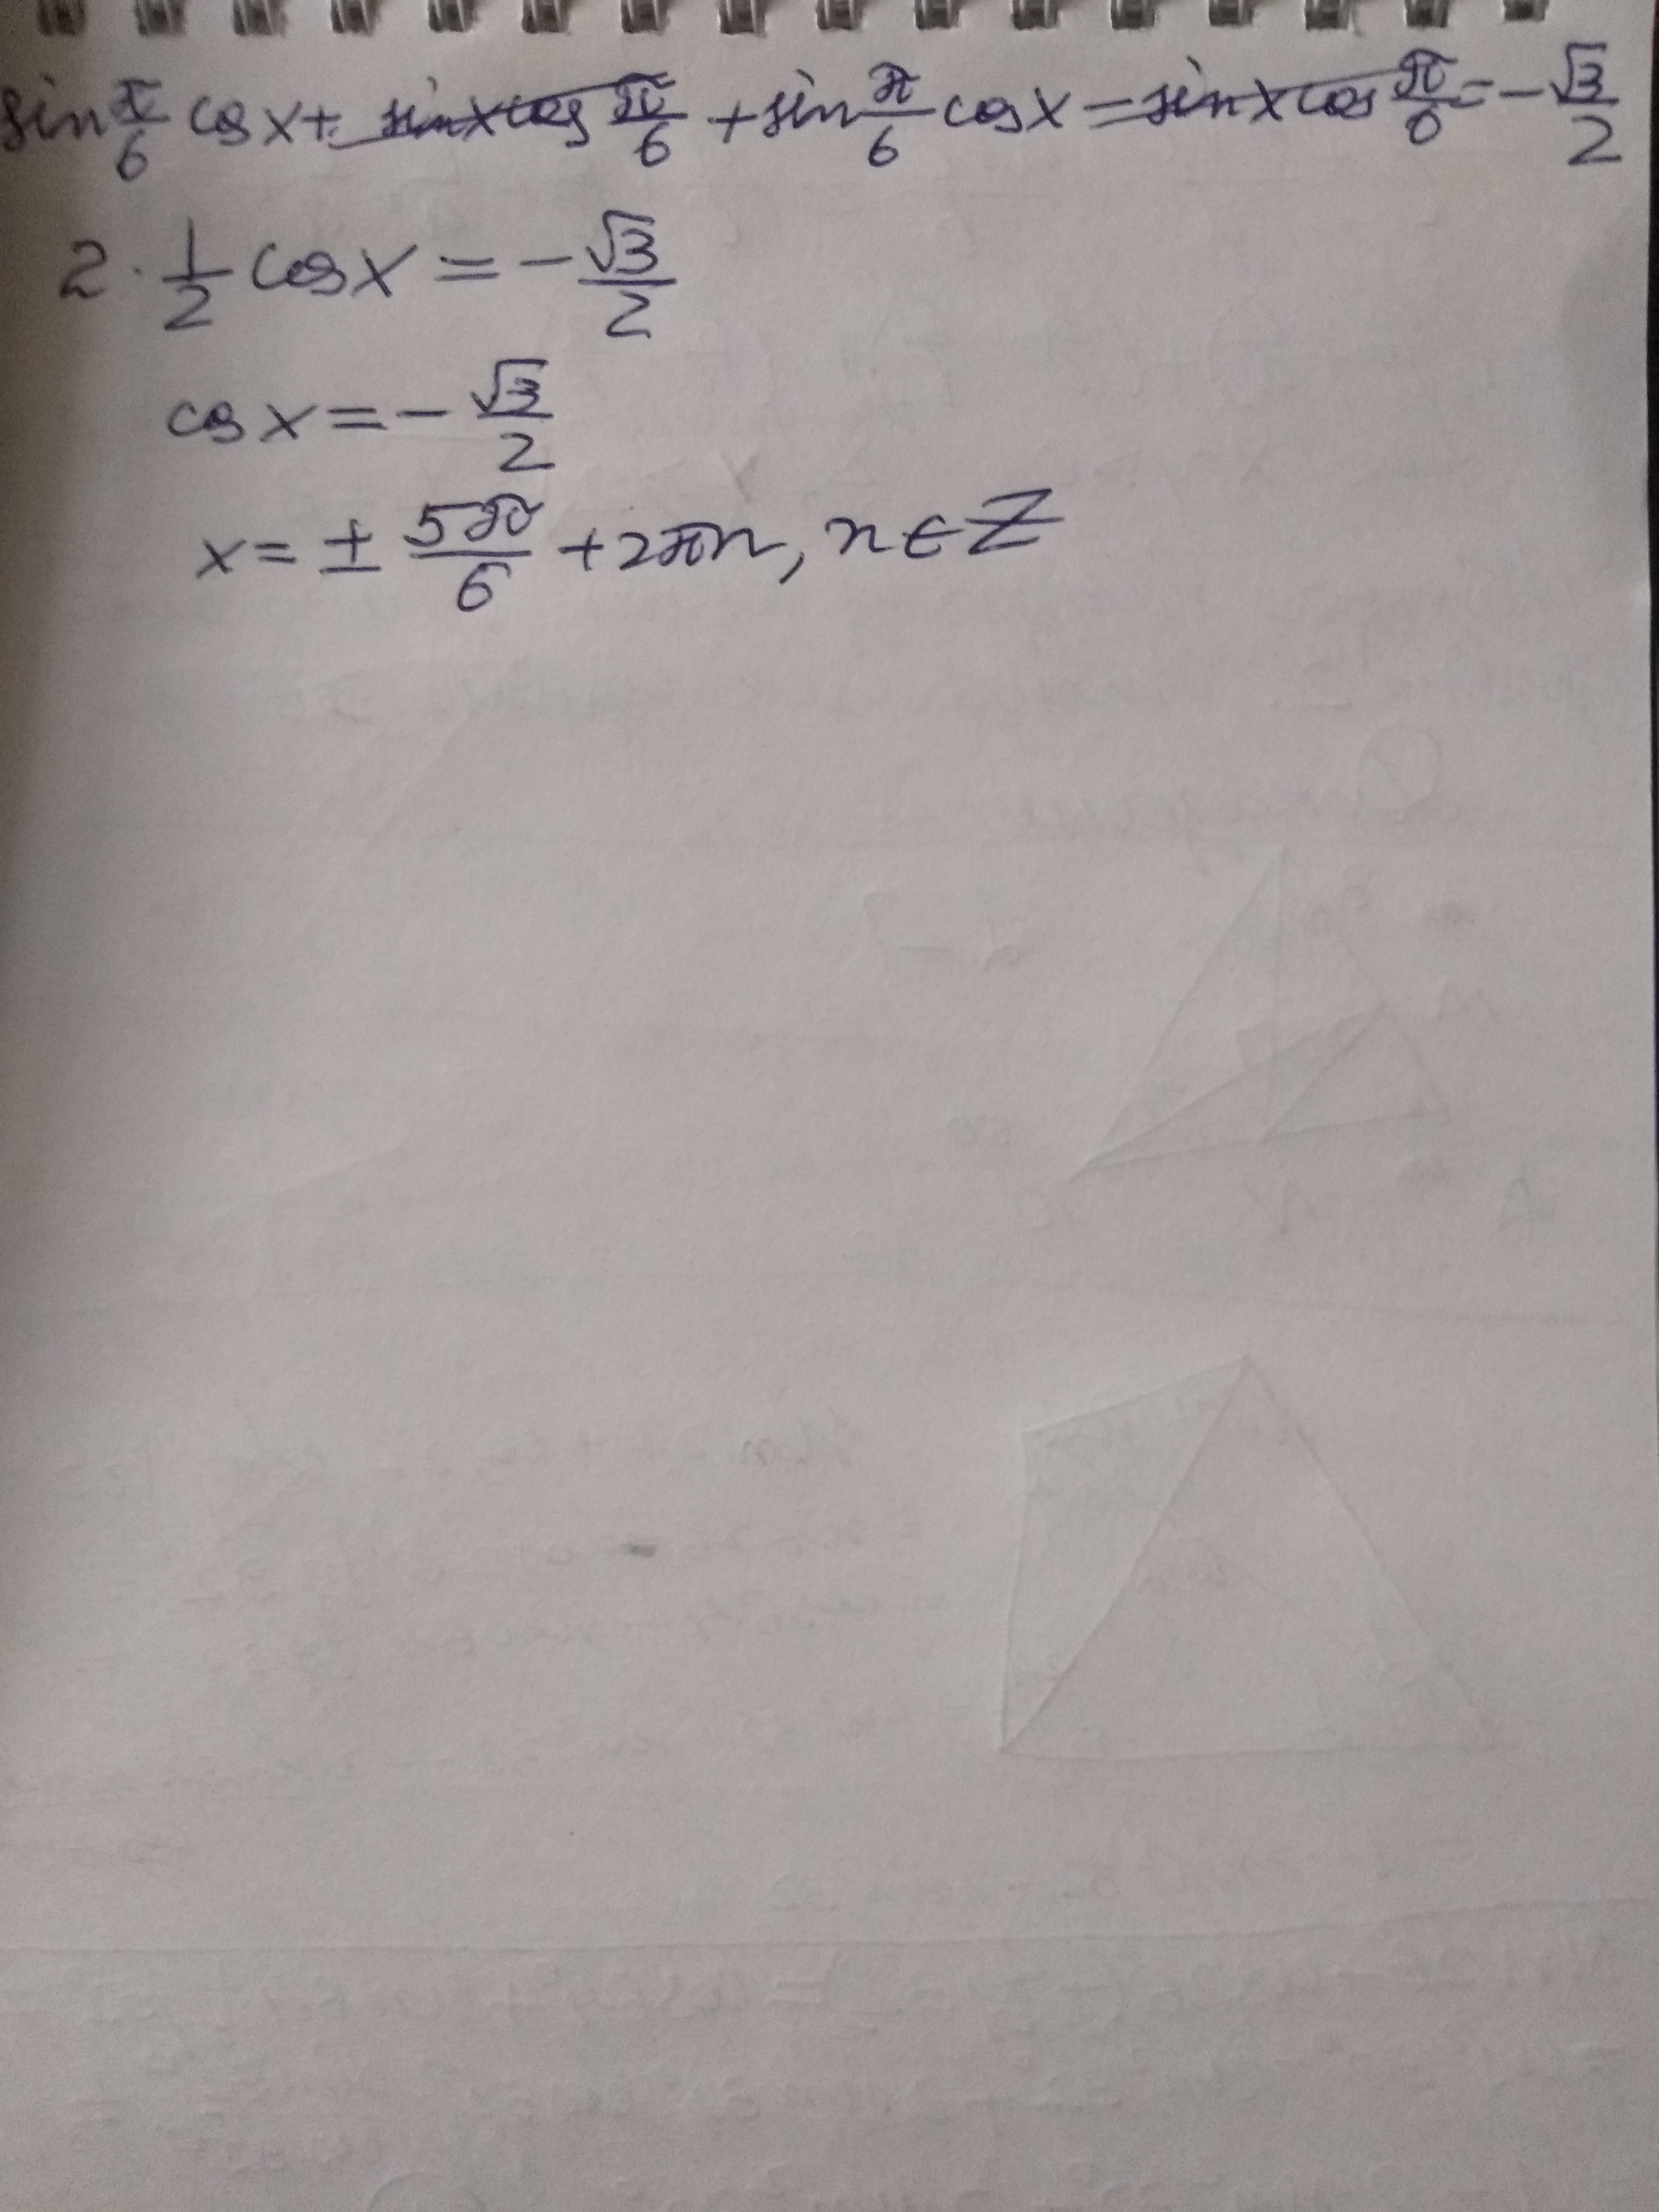 sin π/6 cos x + sin x cos π/6 + sin π/6 cos x = sin x cos π/6 = -√3/2
2 · 1/2 cos x = -√3/2
cos x = -√3/2
x = ± 5π/6 + 2πn, n ∈ Z